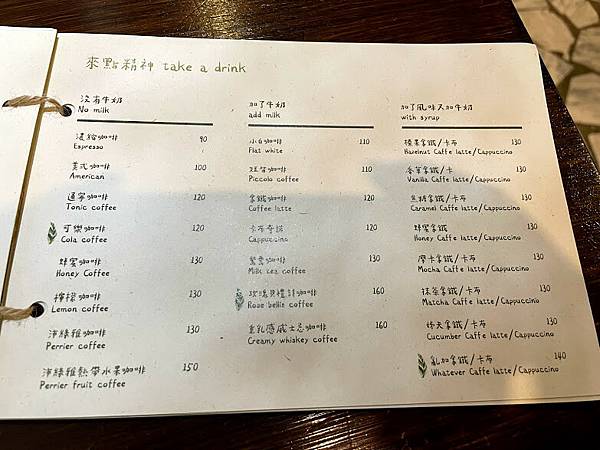 來點精神 take a drink
沒有牛奶
No milk
濃縮咖啡 90
Espresso
美式咖啡 100
American
通寧咖啡 120
Tonic coffee
可樂咖啡 120
Cola coffee
蜂蜜咖啡 130
Honey Coffee
檸檬咖啡 130
Lemon coffee
沛綠雅咖啡 130
Perrier coffee
沛綠雅熱帶水果咖啡 150
Perrier fruit coffee
加了牛奶
add milk
小白咖啡 110
Flat white
短笛咖啡 110
Piccolo coffee
拿鐵咖啡 120
Coffee latte
卡布奇諾 120
Cappuccino
鴛鴦咖啡 130
Milk tea coffee
玫瑰貝禮詩咖啡 160
Rose bellis coffee
重乳感威士忌咖啡 160
Creamy whiskey coffee
加了風味又加牛奶
with syrup
榛果拿鐵/卡布 130
Hazelnut Caffe latte/Cappuccino
香草拿鐵/卡 130
Vanilla Caffe latte/Cappuccino
焦糖拿鐵/卡布 130
Caramel Caffe latte/Cappuccino
蜂蜜拿鐵 130
Honey Caffe latte/Cappuccino
摩卡拿鐵/卡布 130
Mocha Caffe latte/Cappuccino
抹茶拿鐵/卡布 130
Matcha Caffe latte/Cappuccino
拿鐵/卡布 130
Cucumber Caffe latte/Cappuccino
亂加拿鐵/卡布 140
Whatever Caffe latte/Cappuccino